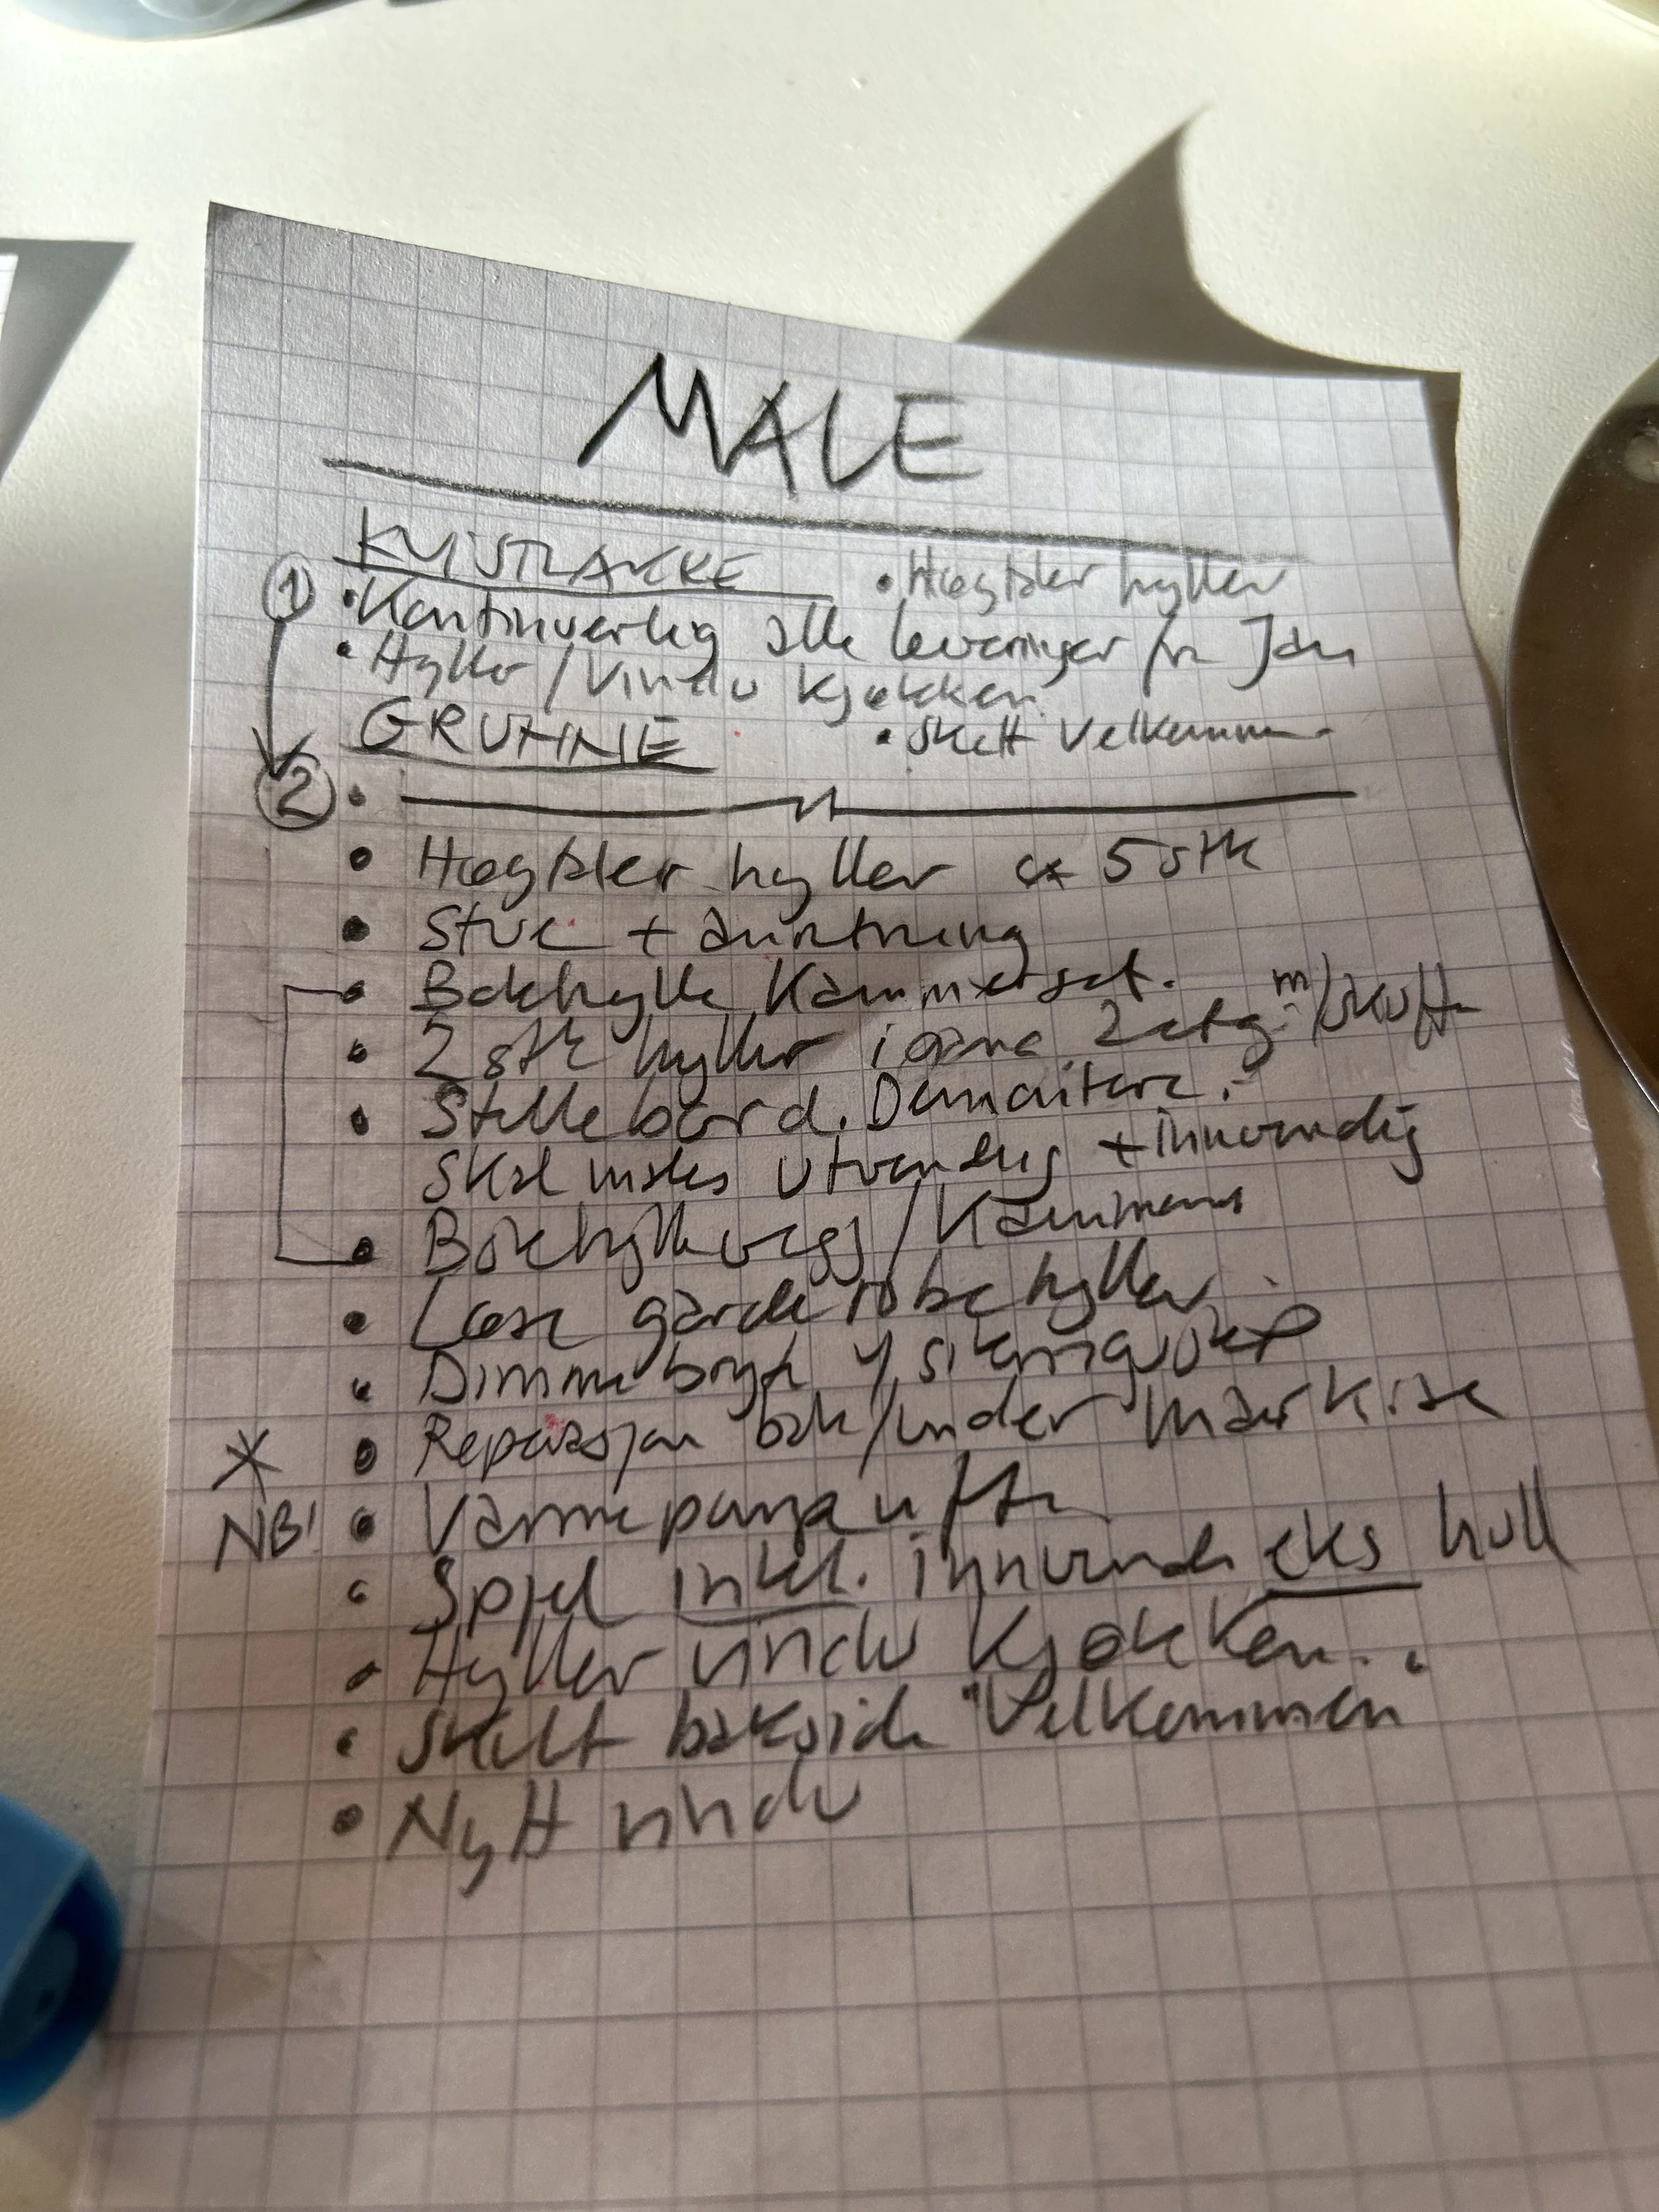 MALE
KVISTLAKKE
• Høgtaler hyller
① • Kontinuerlig alle leveringer fra Jan
• Hyller / Vindu kjøkken
GRUNNE
• Skilt Velkommen
② •
• Høgtaler hyller ca 5 stk
• Stue +
• Bokhylle Kammerset.
• 2 stk hyller i 2 etg m/skuff
• Stellebord. Demontere.
Skal males utvendig + innvendig
• Bokhyllevegg / Kammers
• Løse garderobehyller
• Dimmebryt v/sikringsskap
* • Reparasjon bak/under markise
NB! • Varmepumpe
• Spjel inkl. innvendi eks hull
• Hyller vindu kjøkken.
• Skilt bakside "Velkommen"
• Nytt vindu